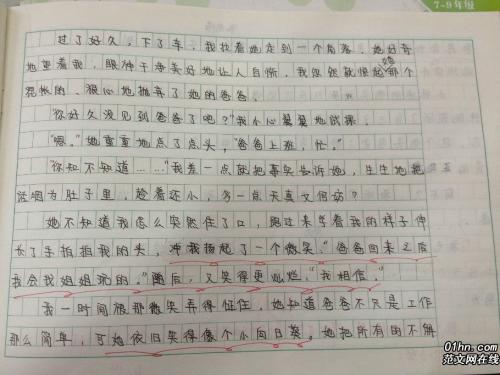 7-9年级
过了好久，下了车，我拉着她走到一个角落，她好奇
地望着我，眼神干净美好地让人自惭，我忽然就恨起那个
混帐的、狠心地抛弃了她的爸爸。
"你好久没见到爸爸了吧？"我小心翼翼地试探。
"嗯。"她重重地点了点头，"爸爸上班，忙。"
"你知不知道……"我差一点就把事实告诉她，生生地把
话咽为肚子里，趁着还小，多一点天真又何妨？
她不知道我怎么突然住了口，跑过来学着我的样子伸
长了手拍拍我的头，冲我扬起了一个微笑。"爸爸回来之后
我会找姐姐玩的。"随后，又笑得更灿烂。"我相信。"
我一时间被那微笑弄得怔住，她知道爸爸不只是工作
那么简单，可她依旧笑得像个小向日葵。她把所有的不解
01hn.com
范文网在线